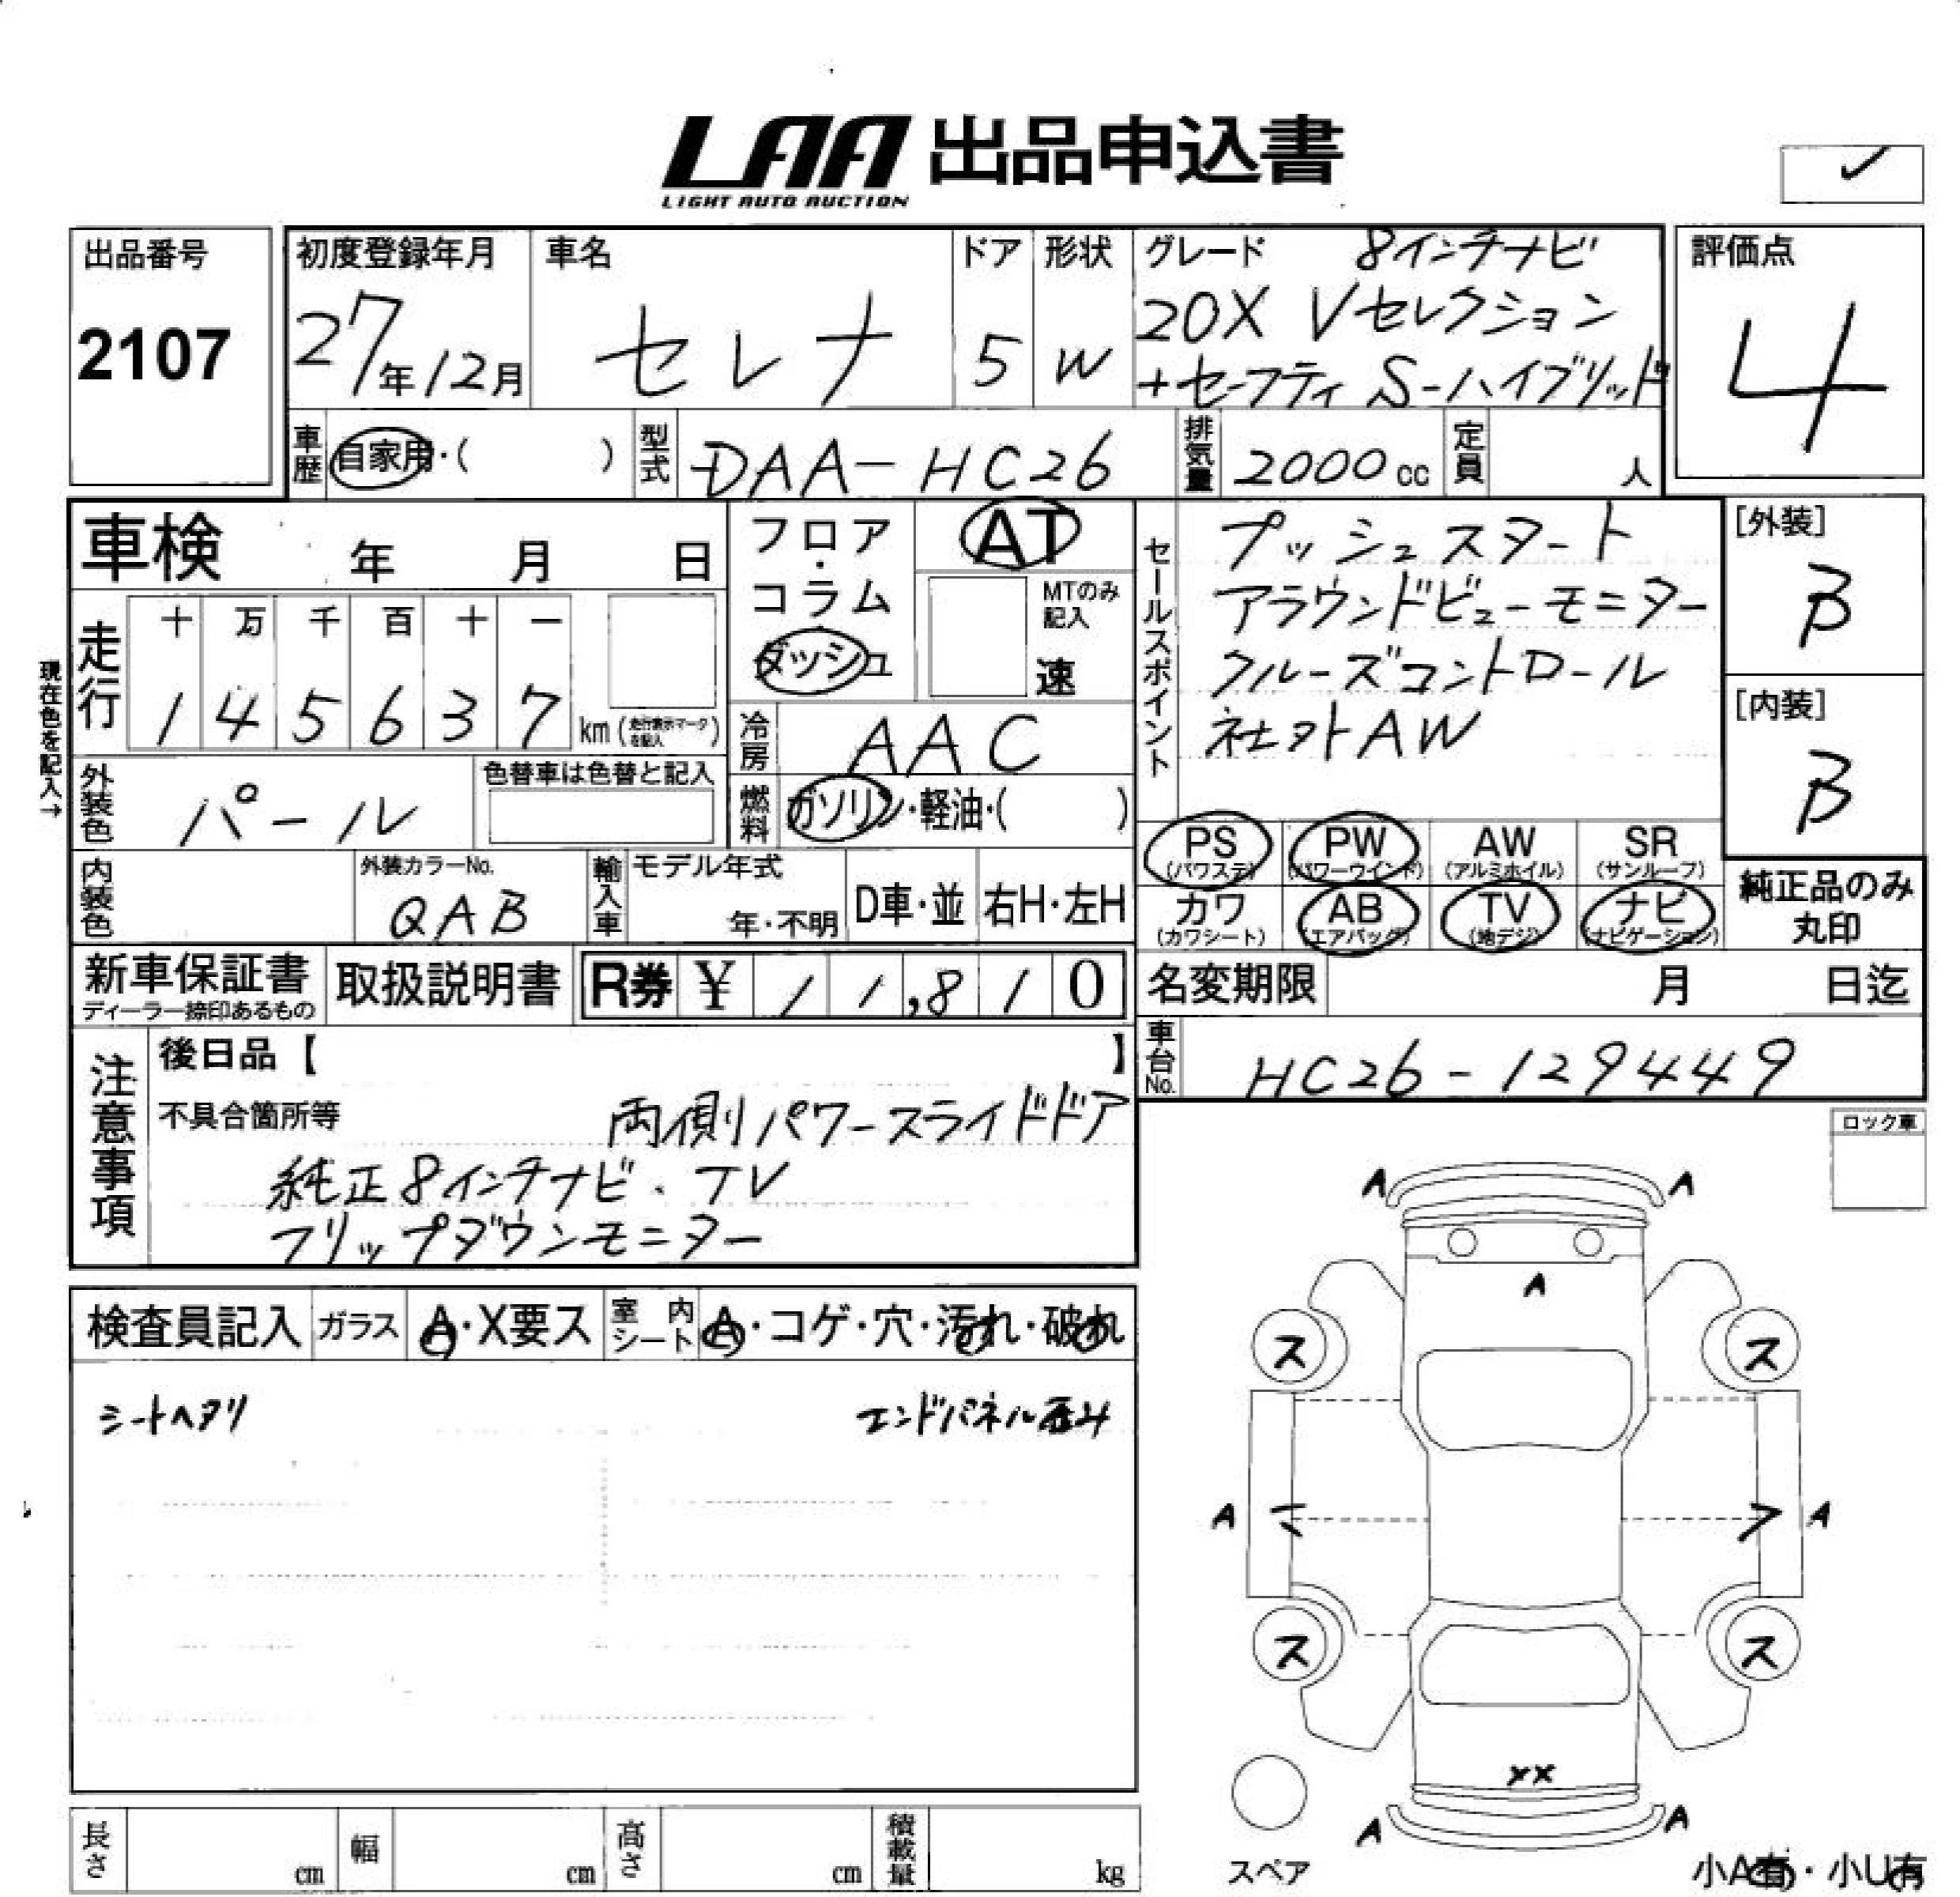 LAA 出品申込書
LIGHT AUTO AUCTION
出品番号
2107
初度登録年月
27年12月
車名
セレナ
ドア
5
形状
W
グレード 8インチナビ
20X Vセレクション
+セーフティ S-ハイブリッド
評価点
4
車歴
自家用・( )
型式
DAA-HC26
排気量
2000cc
定員
人
車検 年 月 日
フロア・コラム
ダッシュ
AT
MTのみ
記入
速
セールスポイント
プッシュスタート
アラウンドビューモニター
クルーズコントロール
社外AW
[外装]
B
[内装]
B
現在色を記入→
走行
十 万 千 百 十 一
1 4 5 6 3 7 km(走行表示マークを記入)
冷房
AAC
外装色
パール
色替車は色替と記入
燃料
ガソリン・軽油・( )
PS (パワステ)
PW (パワーウインド)
AW (アルミホイル)
SR (サンルーフ)
カワ (カワシート)
AB (エアバッグ)
TV (地デジ)
ナビ (ナビゲーション)
純正品のみ
丸印
内装色
外装カラーNo.
QAB
輸入車
モデル年式
年・不明
D車・並
右H・左H
新車保証書
ディーラー捺印あるもの
取扱説明書
R券 ¥ 1 1,8 1 0
名変期限 月 日迄
車台No.
HC26-129449
注意事項
後日品【 】
不具合箇所等 両側パワースライドドア
純正8インチナビ.TV
フリップダウンモニター
ロック車
検査員記入
ガラス
A・X要ス
室内シート
A・コゲ・穴・汚れ・破れ
シートヘタリ
エンドパネル歪み
A A
A
ス ス
A A
ス ス
XX
A A
スペア
小A有・小U有
長さ cm
幅 cm
高さ cm
積載量 kg